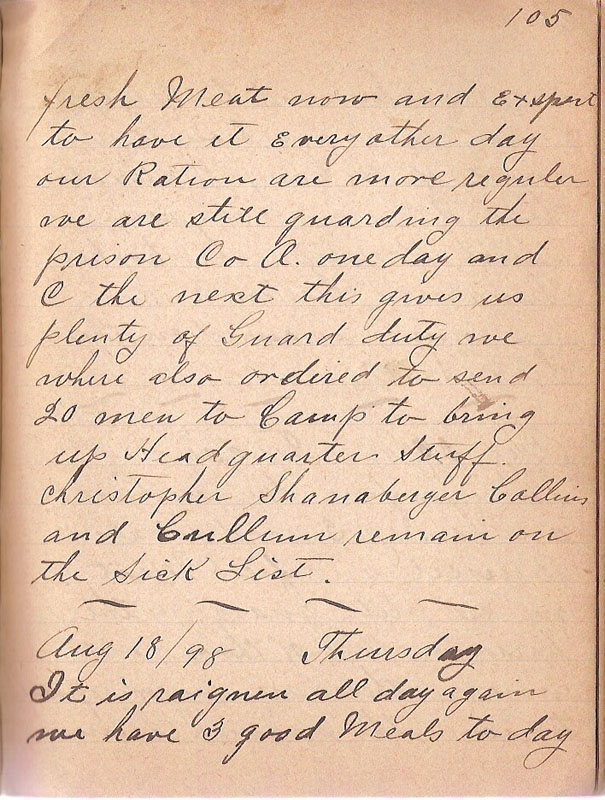 105
fresh Meat now and Expect
to have it Every other day
our Ration are more reguler
we are still guarding the
prison Co A. one day and
C the next this gives us
plenty of Guard duty we
where also ordired to send
20 men to Camp to bring
up Headquarter Stuff.
Christopher Shanaberger Collins
and Cullum remain on
the Sick List.
Aug 18/98 Thursday
It is raignen all day again
we have 3 good Meals to day